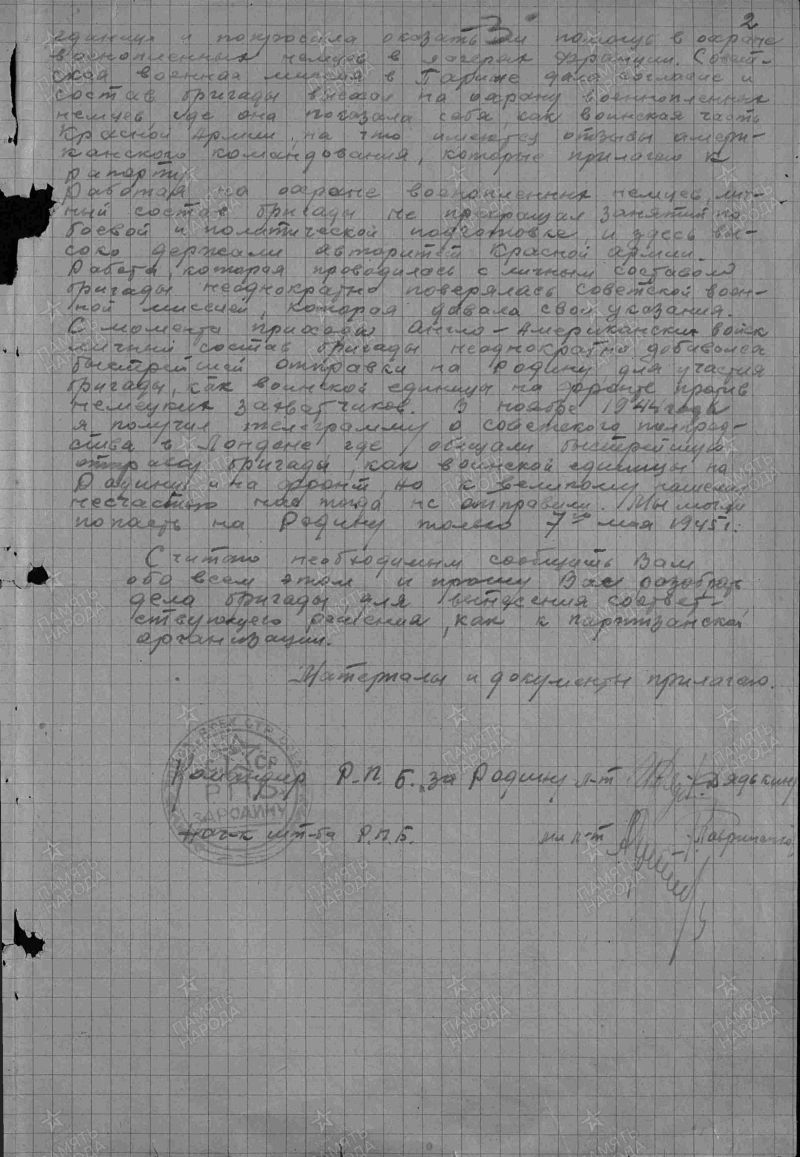 2
3
единица и попросила оказать им помощь в охране
военнопленных немцев в лагерях Франции. Совет-
ская военная миссия в Париже дала согласие и
состав бригады выехал на охрану военнопленных
немцев, где она показала себя как воинская часть
Красной Армии, на что имеются отзывы амери-
канского командования, которые прилагаю к
рапорту.
Работая на охране военопленных немцев, лич-
ный состав бригады не прекращал занятий по
боевой и политической подготовке и здесь вы-
соко держали авторитет Красной армии.
Работа, которая проводилась с личным составом
бригады неоднократно поверялась Советской воен-
ной миссией, которая давала свои указания.
С момента прихода Англо-Американских войск
личный состав бригады неоднократно добивался
быстрейшей отправки на Родину для участия
бригады, как воинской единицы на фронте против
немецких захватчиков. В ноябре 1944 года
я получил телеграмму о советского полпред-
ства в Лондоне где обещали быстрейшую
отправку бригады, как воинской единицы на
Родину и на фронт, но к великому нашему
несчастью нас тогда не отправили. Мы могли
попасть на Родину только 7го мая 1945 г.
Считаю необходимым сообщить Вам
обо всем этом и прошу Вас разобрать
дела бригады для вынесения соответ-
ствующего решения, как к партизанской
организации.
Материалы и документы прилагаю.
Командир Р.П.Б. "за Родину" л-т Дядькин
СССР
Р.П.Б.
ЗА РОДИНУ
Нач-к шт-ба Р.П.Б. мл л-т
ПАМЯТЬ
НАРОДА